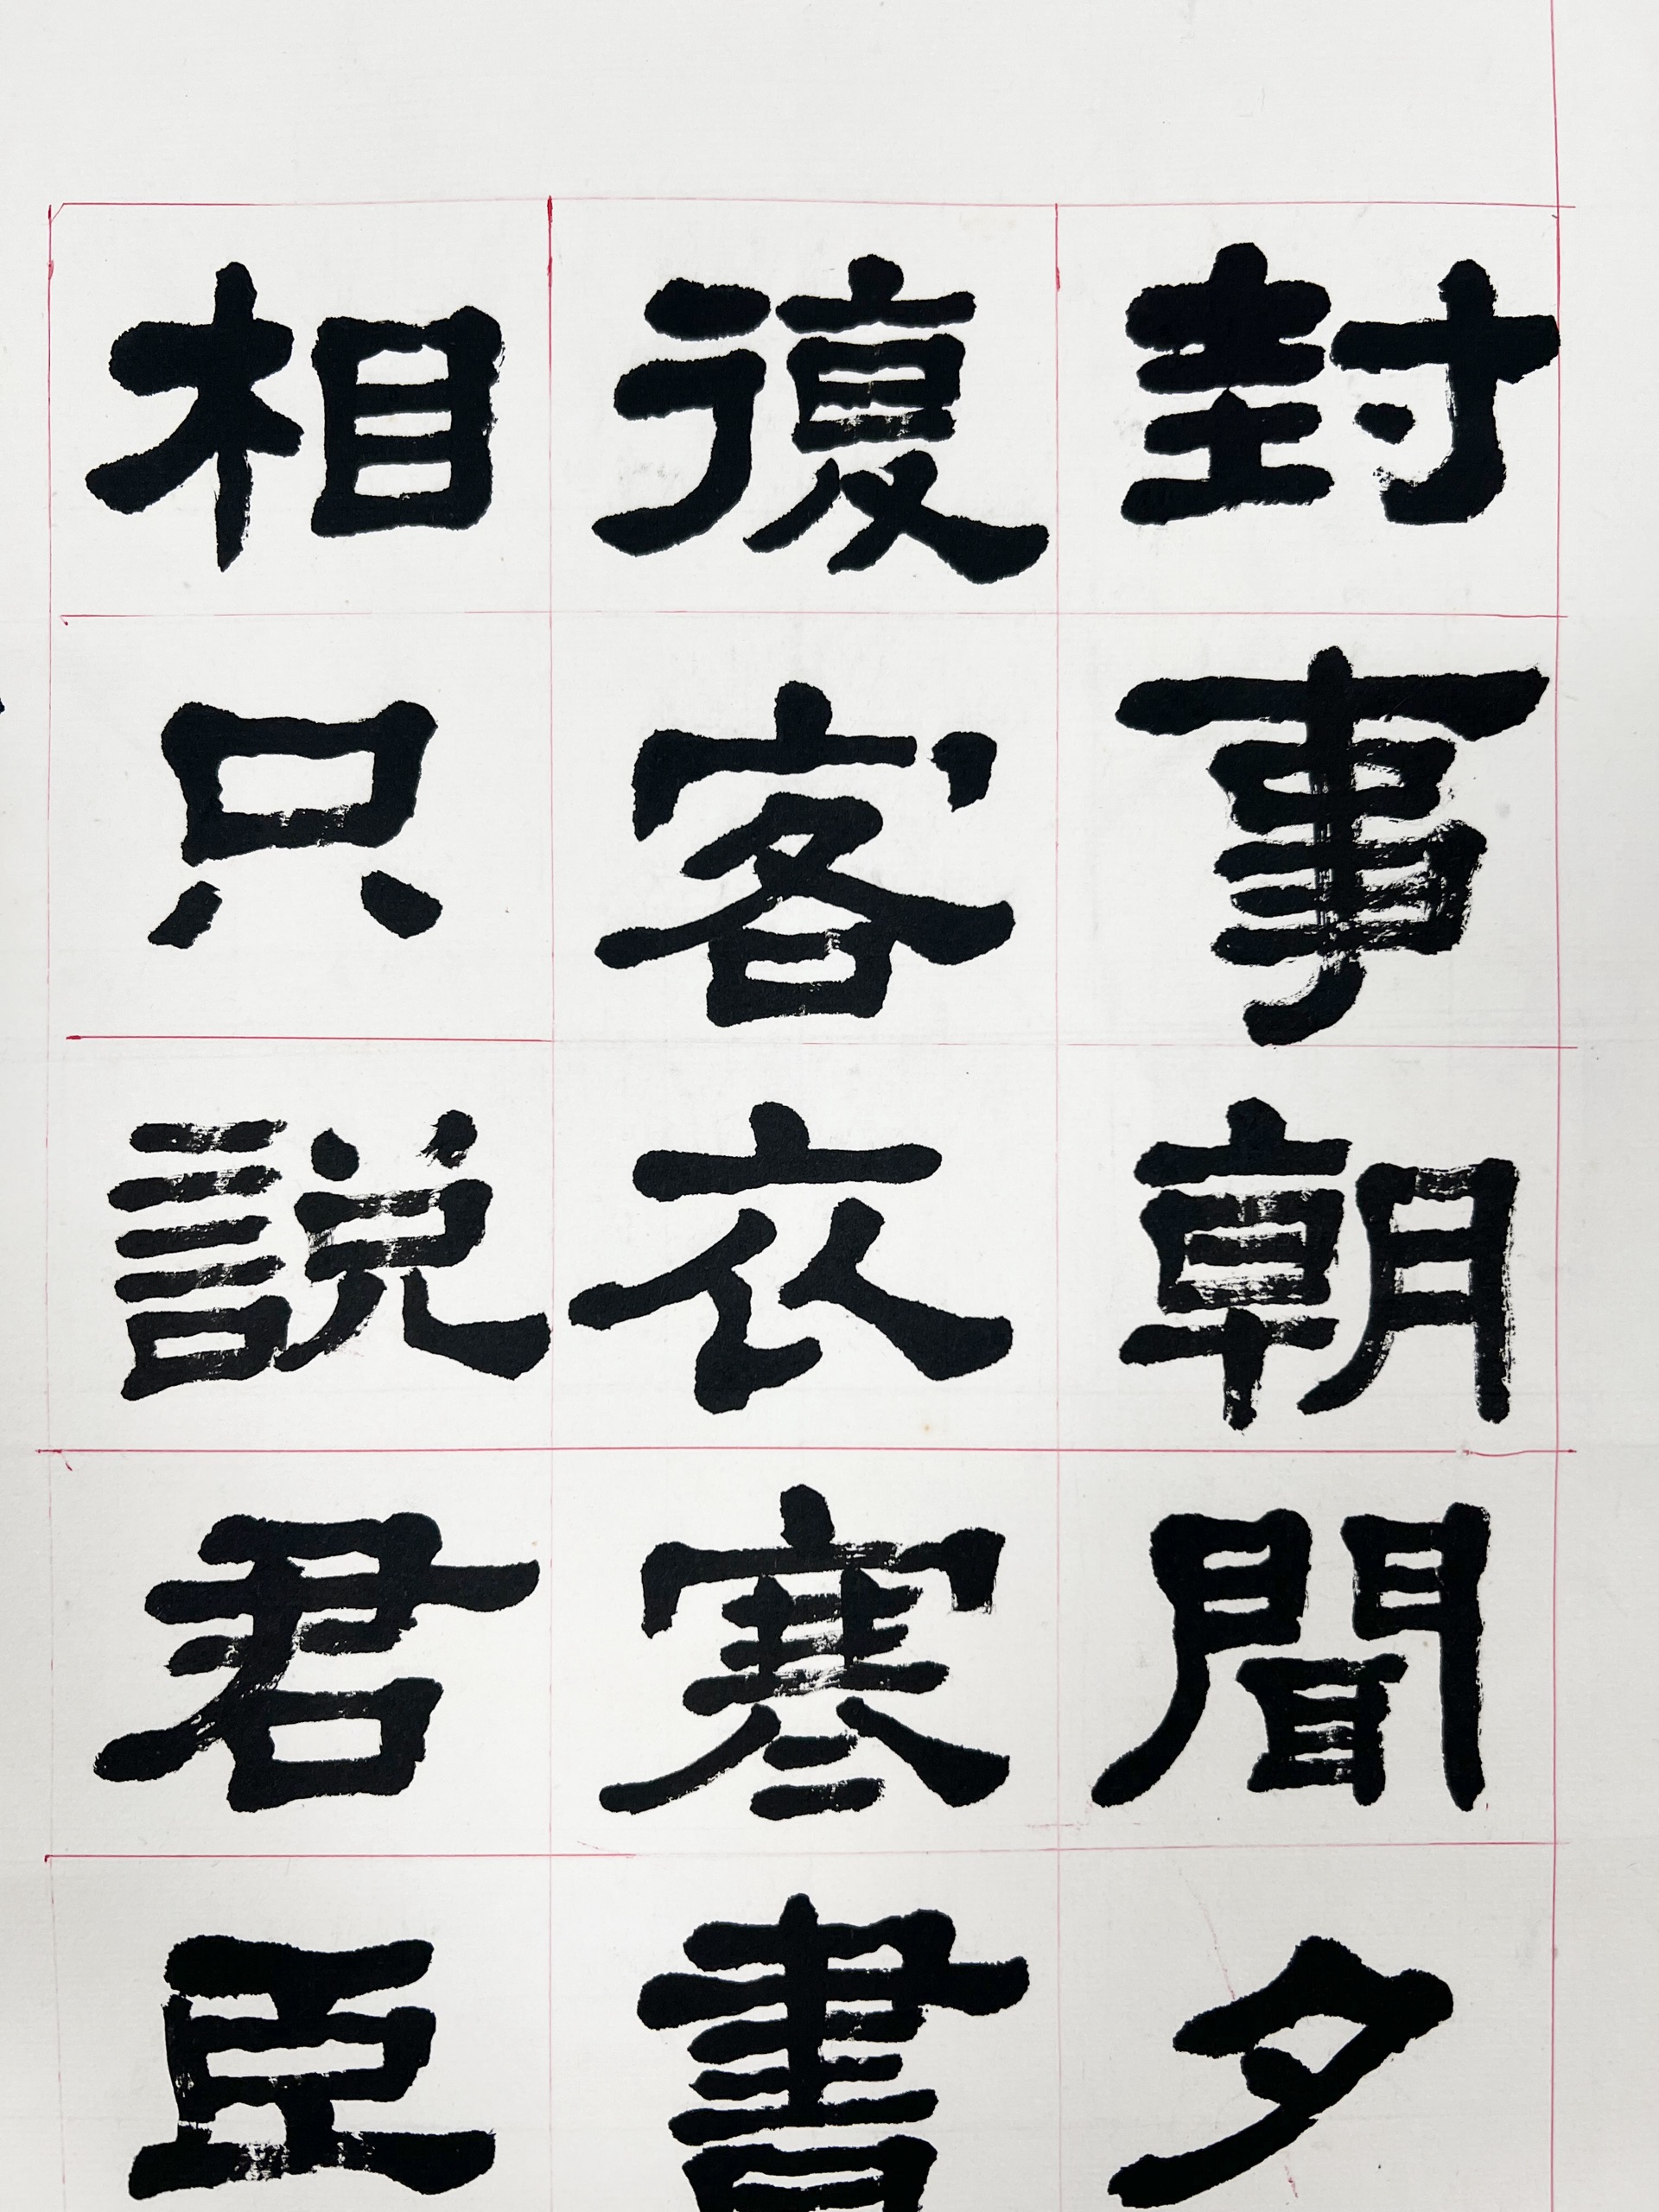 封事朝聞夕
復客衣寒書
相只説君臣